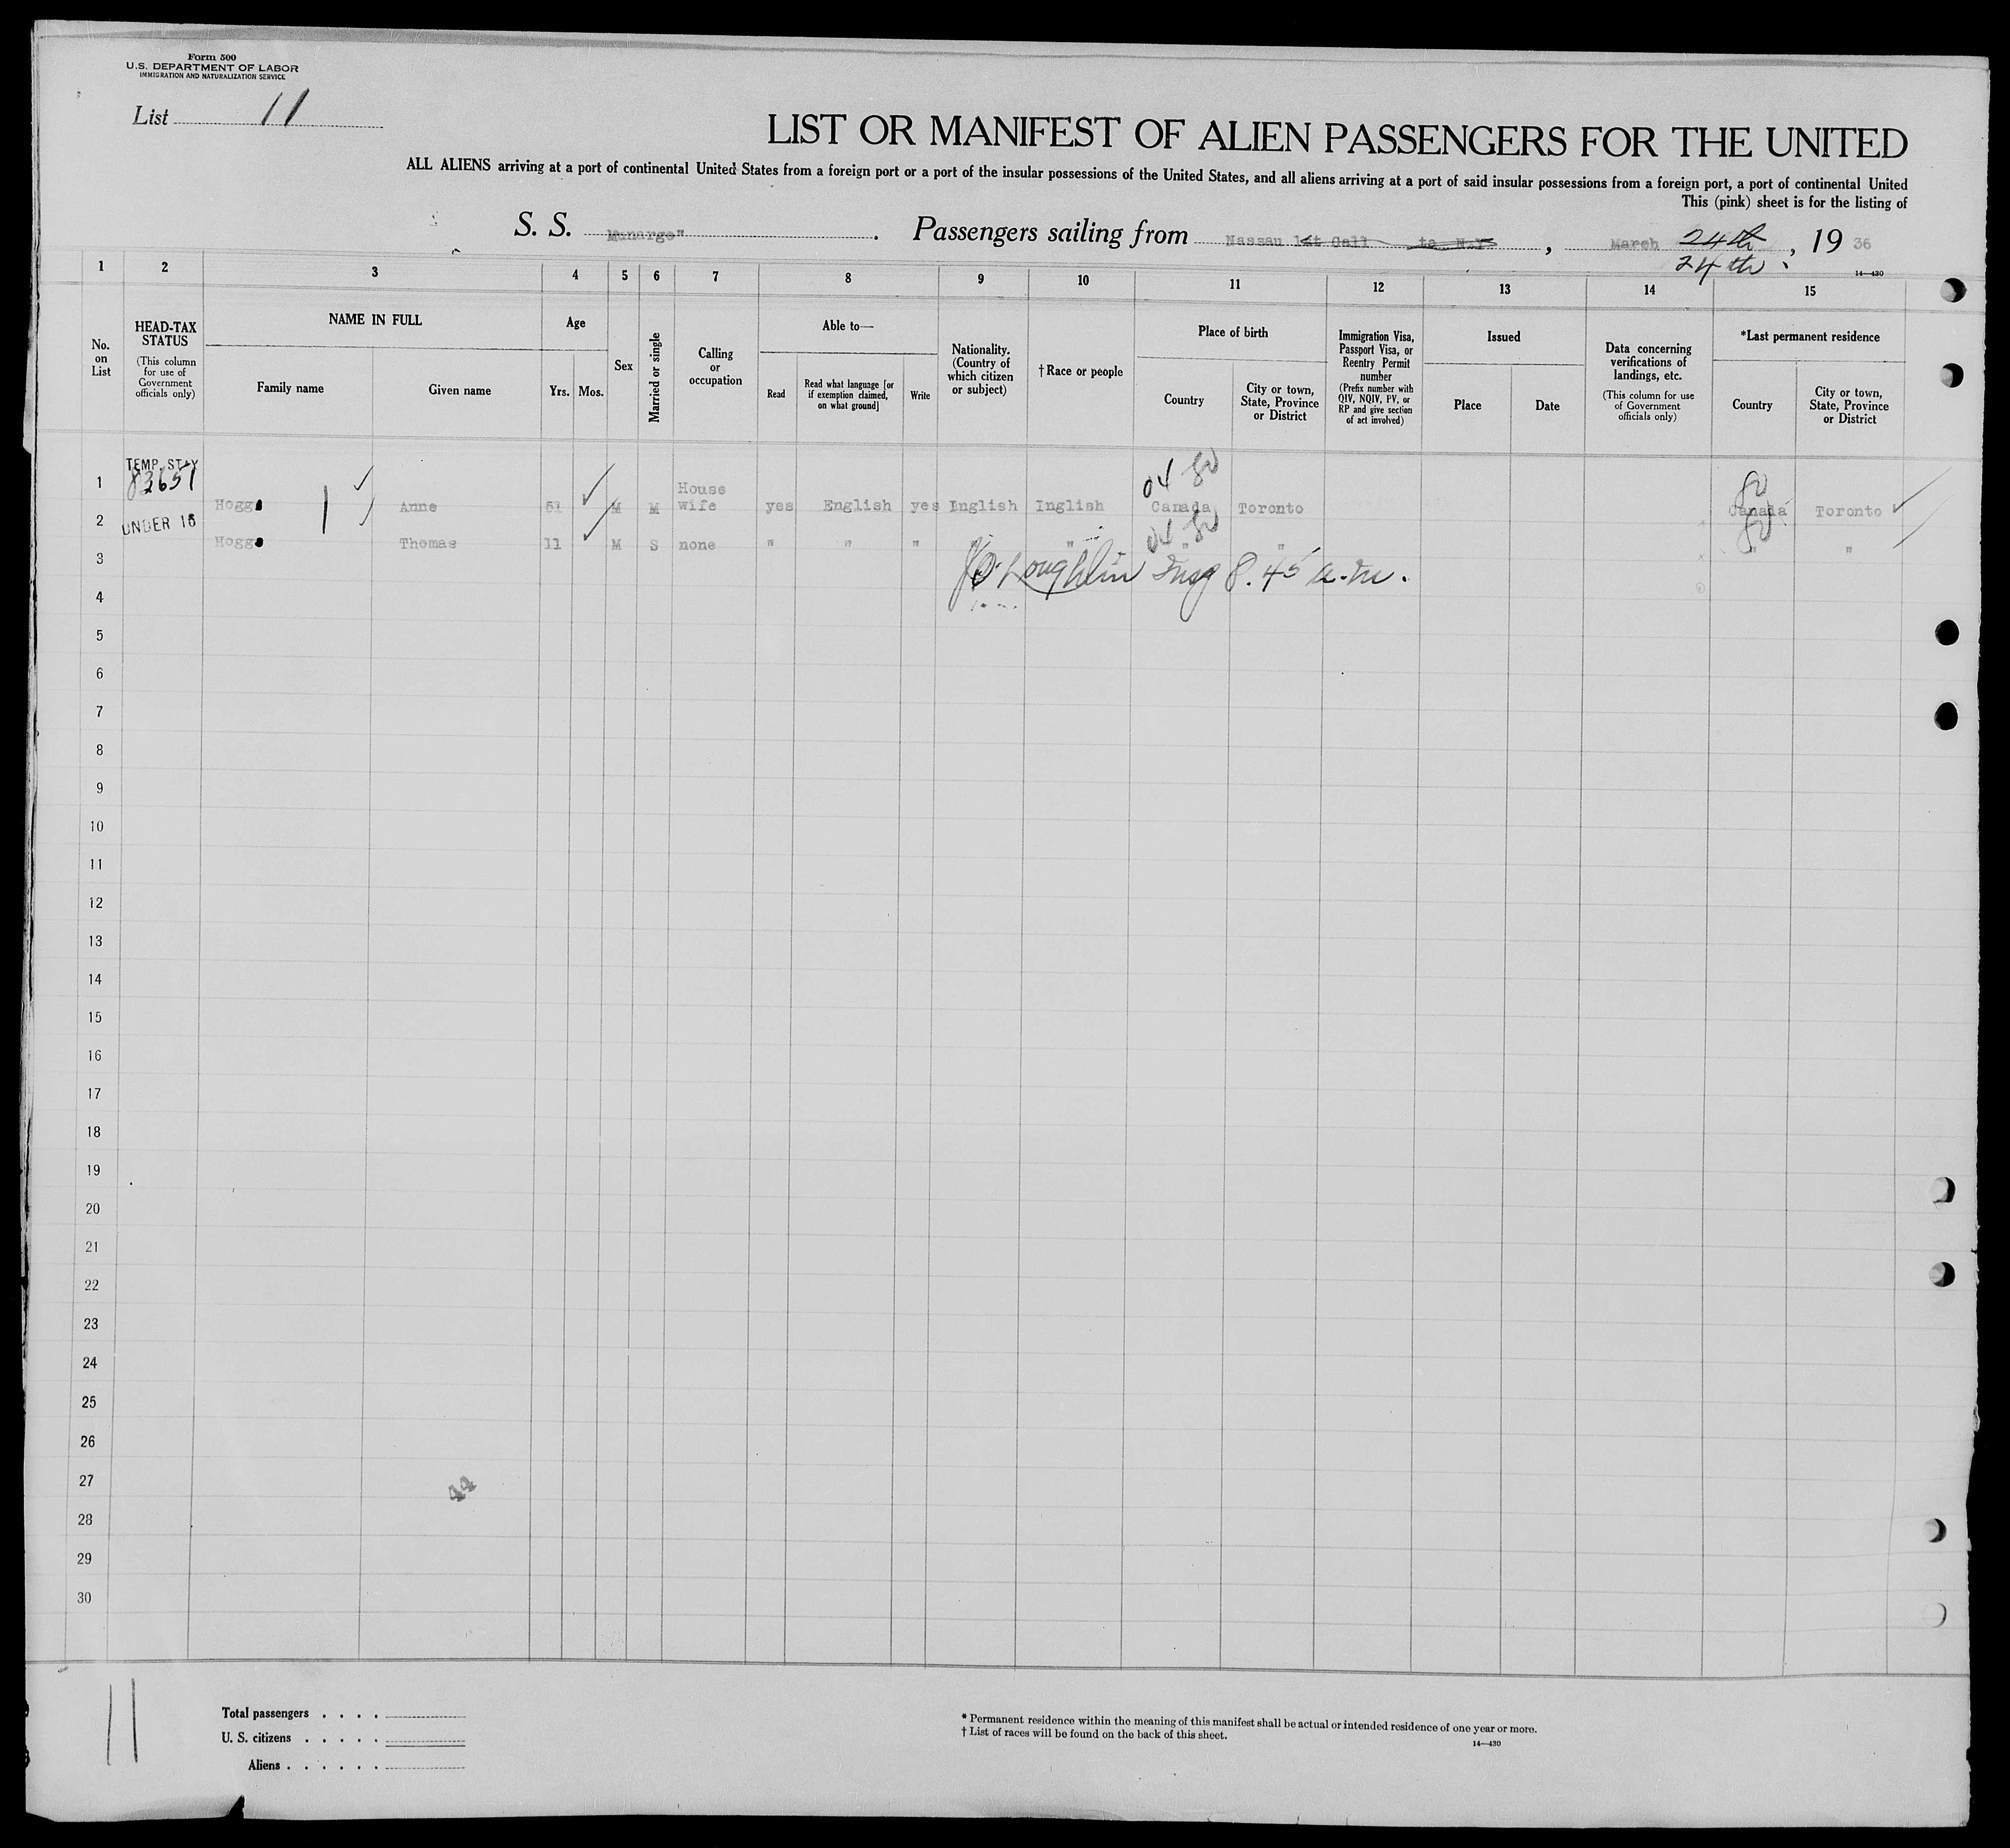 Form 500
U.S. DEPARTMENT OF LABOR
IMMIGRATION AND NATURALIZATION SERVICE
List 11
LIST OR MANIFEST OF ALIEN PASSENGERS FOR THE UNITED
ALL ALIENS arriving at a port of continental United States from a foreign port or a port of the insular possessions of the United States, and all aliens arriving at a port of said insular possessions from a foreign port, a port of continental United
This (pink) sheet is for the listing of
S. S. Munargo" . Passengers sailing from Nassau 1st Call to N.Y , March 24th , 19 36
24th
14—430
1 2 3 4 5 6 7 8 9 10 11 12 13 14 15
No. on List
HEAD-TAX STATUS
(This column for use of Government officials only)
NAME IN FULL
Family name
Given name
Age
Yrs.
Mos.
Sex
Married or single
Calling or occupation
Able to—
Read
Read what language [or if exemption claimed, on what ground]
Write
Nationality. (Country of which citizen or subject)
† Race or people
Place of birth
Country
City or town, State, Province or District
Immigration Visa, Passport Visa, or Reentry Permit number
(Prefix number with QIV, NQIV, PV, or RP and give section of act involved)
Issued
Place
Date
Data concerning verifications of landings, etc.
(This column for use of Government officials only)
*Last permanent residence
Country
City or town, State, Province or District
TEMP. STAY
83651
04 80
80
1 Hogg Anne 51 M M House wife yes English yes Inglish Inglish Canada Toronto Canada Toronto
UNDER 16
04 80
80
2 Hogg Thomas 11 M S none " " " " " " " " "
3
O'Loughlin Insp 8.45 a.m.
4
5
6
7
8
9
10
11
12
13
14
15
16
17
18
19
20
21
22
23
24
25
26
27
44
28
29
30
11
Total passengers . . . .
U. S. citizens . . . . .
Aliens . . . . . .
* Permanent residence within the meaning of this manifest shall be actual or intended residence of one year or more.
† List of races will be found on the back of this sheet.
14—430